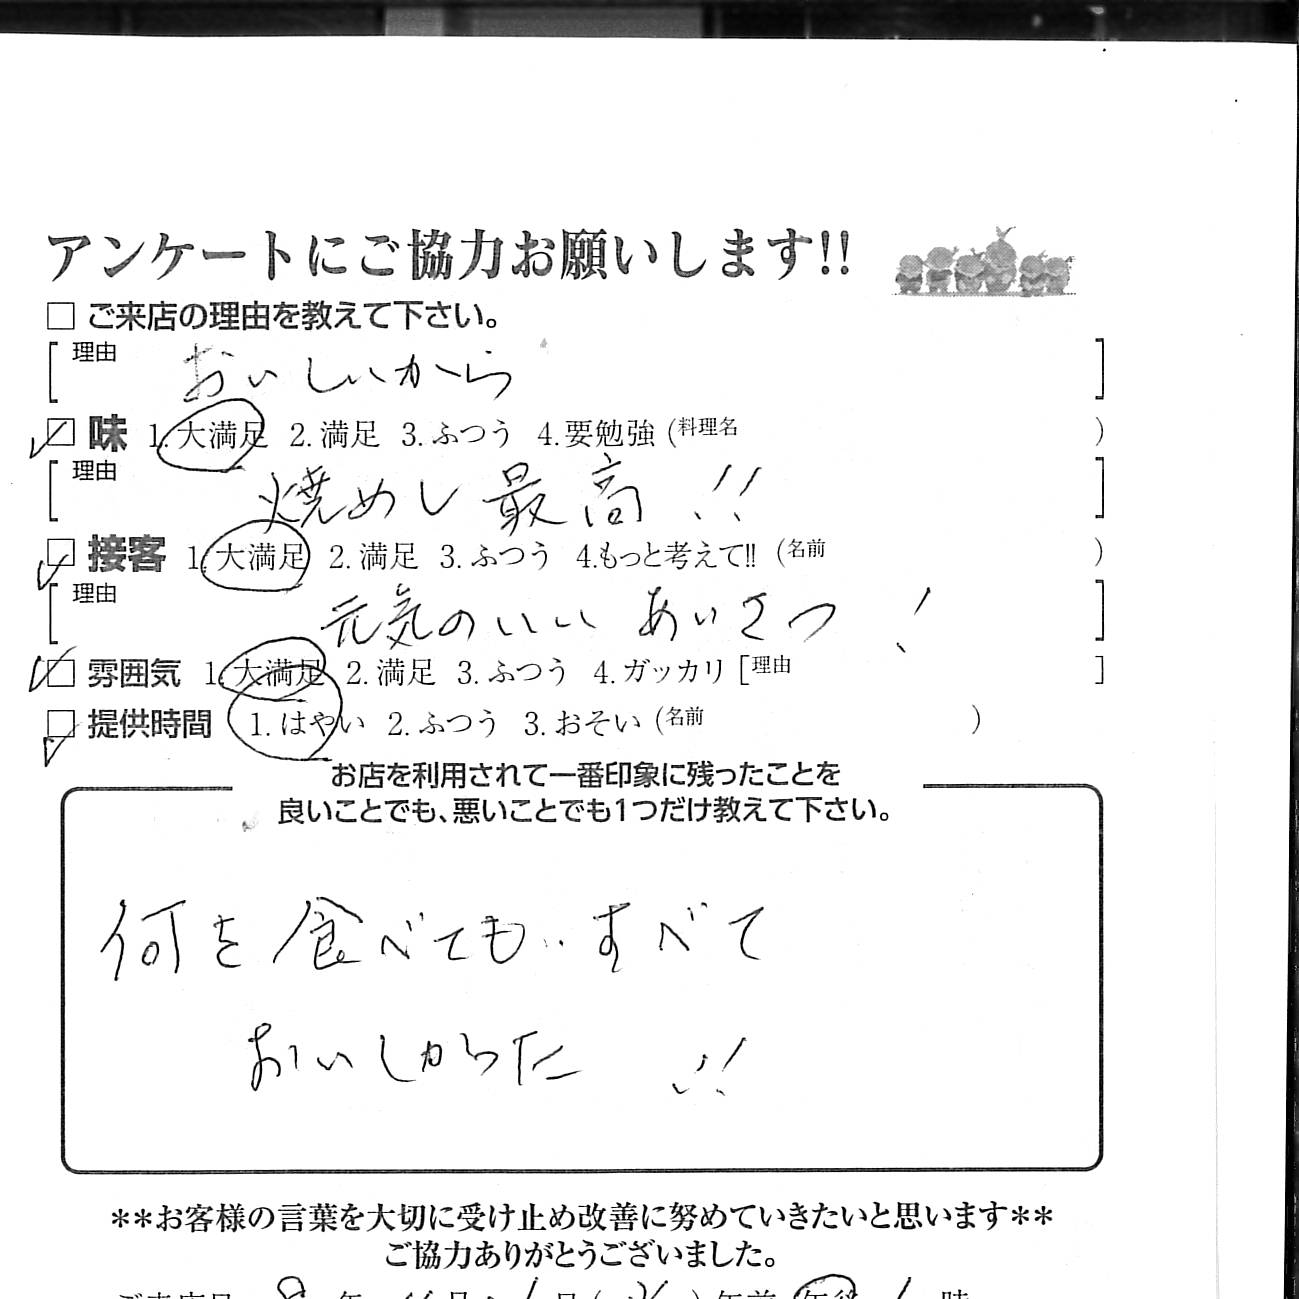 アンケートにご協力お願いします!!
□ ご来店の理由を教えて下さい。
[理由 おいしいから ]
□ 味 1.大満足 2.満足 3.ふつう 4.要勉強 (料理名 )
[理由 焼めし最高!! ]
□ 接客 1.大満足 2.満足 3.ふつう 4.もっと考えて!! (名前 )
[理由 元気のいい あいさつ! ]
□ 雰囲気 1.大満足 2.満足 3.ふつう 4.ガッカリ [理由 ]
□ 提供時間 1.はやい 2.ふつう 3.おそい (名前 )
お店を利用されて一番印象に残ったことを
良いことでも、悪いことでも1つだけ教えて下さい。
何を食べても..すべて
おいしかった !!
**お客様の言葉を大切に受け止め改善に努めていきたいと思います**
ご協力ありがとうございました。